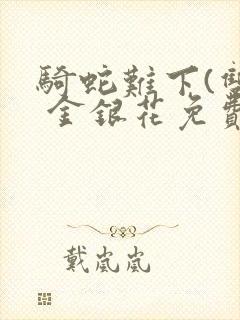 騎蛇難下(雙
金銀花免費
戴嵐嵐